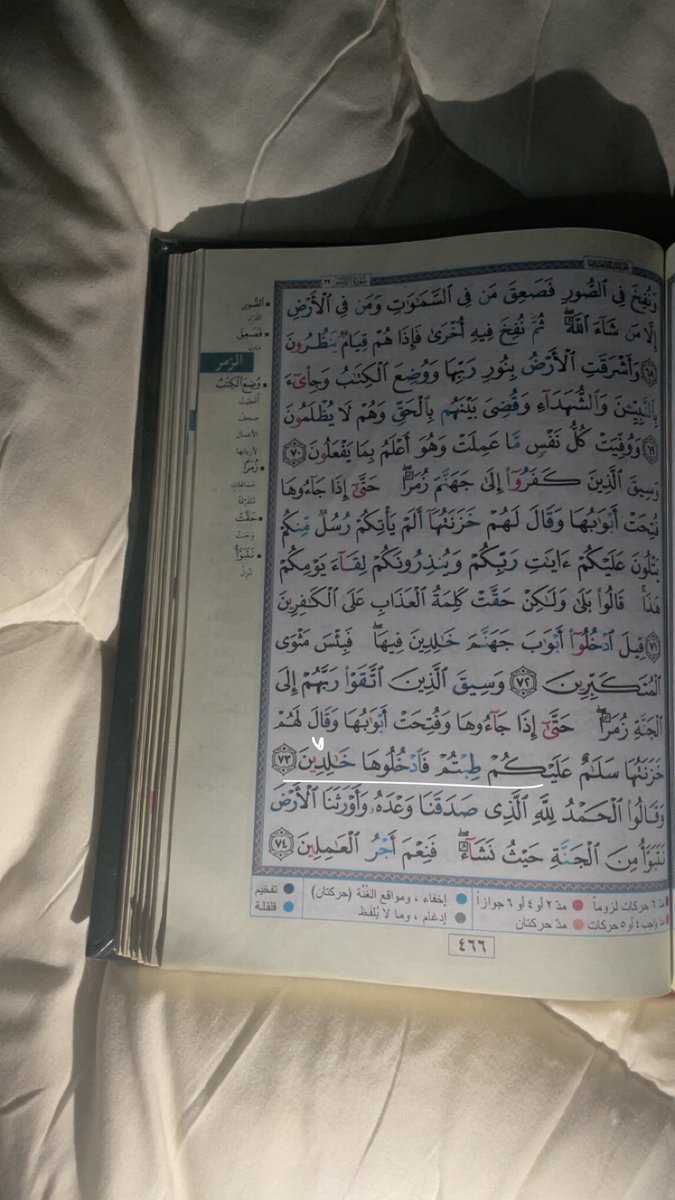 سُورَةُ الزُّمَرِ ٣٩
وَنُفِخَ فِي ٱلصُّورِ فَصَعِقَ مَن فِي ٱلسَّمَٰوَٰتِ وَمَن فِي ٱلْأَرْضِ
إِلَّا مَن شَآءَ ٱللَّهُ ۖ ثُمَّ نُفِخَ فِيهِ أُخْرَىٰ فَإِذَا هُمْ قِيَامٌ يَنظُرُونَ
٦٨ وَأَشْرَقَتِ ٱلْأَرْضُ بِنُورِ رَبِّهَا وَوُضِعَ ٱلْكِتَٰبُ وَجِا۟ىٓءَ
بِٱلنَّبِيِّۦنَ وَٱلشُّهَدَآءِ وَقُضِىَ بَيْنَهُم بِٱلْحَقِّ وَهُمْ لَا يُظْلَمُونَ
٦٩ وَوُفِّيَتْ كُلُّ نَفْسٍ مَّا عَمِلَتْ وَهُوَ أَعْلَمُ بِمَا يَفْعَلُونَ ٧٠
وَسِيقَ ٱلَّذِينَ كَفَرُوٓا۟ إِلَىٰ جَهَنَّمَ زُمَرًا ۖ حَتَّىٰٓ إِذَا جَآءُوهَا
فُتِحَتْ أَبْوَٰبُهَا وَقَالَ لَهُمْ خَزَنَتُهَآ أَلَمْ يَأْتِكُمْ رُسُلٌ مِّنكُمْ
يَتْلُونَ عَلَيْكُمْ ءَايَٰتِ رَبِّكُمْ وَيُنذِرُونَكُمْ لِقَآءَ يَوْمِكُمْ
هَٰذَا ۚ قَالُوا۟ بَلَىٰ وَلَٰكِنْ حَقَّتْ كَلِمَةُ ٱلْعَذَابِ عَلَى ٱلْكَٰفِرِينَ
٧١ قِيلَ ٱدْخُلُوٓا۟ أَبْوَٰبَ جَهَنَّمَ خَٰلِدِينَ فِيهَا ۖ فَبِئْسَ مَثْوَى
ٱلْمُتَكَبِّرِينَ ٧٢ وَسِيقَ ٱلَّذِينَ ٱتَّقَوْا۟ رَبَّهُمْ إِلَى
ٱلْجَنَّةِ زُمَرًا ۖ حَتَّىٰٓ إِذَا جَآءُوهَا وَفُتِحَتْ أَبْوَٰبُهَا وَقَالَ لَهُمْ
خَزَنَتُهَا سَلَٰمٌ عَلَيْكُمْ طِبْتُمْ فَٱدْخُلُوهَا خَٰلِدِينَ ٧٣
وَقَالُوا۟ ٱلْحَمْدُ لِلَّهِ ٱلَّذِى صَدَقَنَا وَعْدَهُۥ وَأَوْرَثَنَا ٱلْأَرْضَ
نَتَبَوَّأُ مِنَ ٱلْجَنَّةِ حَيْثُ نَشَآءُ ۖ فَنِعْمَ أَجْرُ ٱلْعَٰمِلِينَ ٧٤
الصُّورِ
القرن
فَصَعِقَ
مات
الزمر
وُضِعَ الْكِتَٰبُ
أعطيت
صحف
الأعمال
لأربابها
زُمَرًا
جماعات
متفرقة
حَقَّتْ
وجبت
نَتَبَوَّأُ
ننزل
مدّ ٦ حركات لزوماً
مدّ ٢ أو ٤ أو ٦ جوازاً
إخفاء ، ومواقع الغُنَّة (حركتان)
تفخيم
مدّ واجب ٤ أو ٥ حركات
مدّ حركتان
إدغام ، وما لا يُلفَظ
قلقلة
٤٦٦